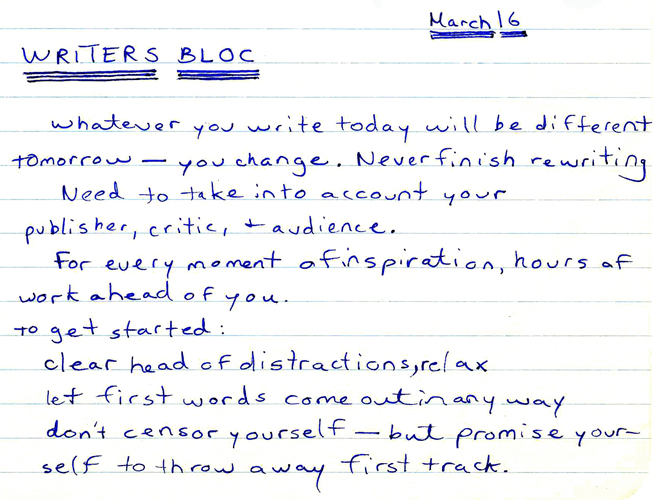 March 16
WRITERS BLOC
whatever you write today will be different
tomorrow — you change. Never finish rewriting
Need to take into account your
publisher, critic, + audience.
For every moment of inspiration, hours of
work ahead of you.
to get started:
clear head of distractions, relax
let first words come out in any way
don't censor yourself — but promise your-
self to throw away first track.